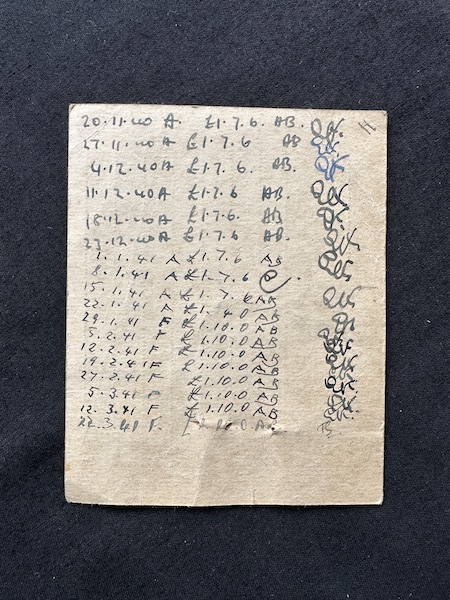 20.11.40 A. £1.7.6. AB.
27.11.40 A £1.7.6 AB
4.12.40 A £1.7.6. AB.
11.12.40 A £1.7.6 AB.
18.12.40 A £1.7.6. AB
23.12.40 A £1.7.6 AB.
1.1.41 A £1.7.6 AB
8.1.41 A £1.7.6
15.1.41 A £1.7.6 AB
22.1.41 A £1.4.0 AB
29.1.41 F £1.10.0 AB
5.2.41 F £1.10.0 AB
12.2.41 F £1.10.0 AB
19.2.41 F £1.10.0 AB
27.2.41 F £1.10.0 AB
5.3.41 F £1.10.0 AB
12.3.41 F £1.10.0 AB
22.3.41 F. 0.0 AB.